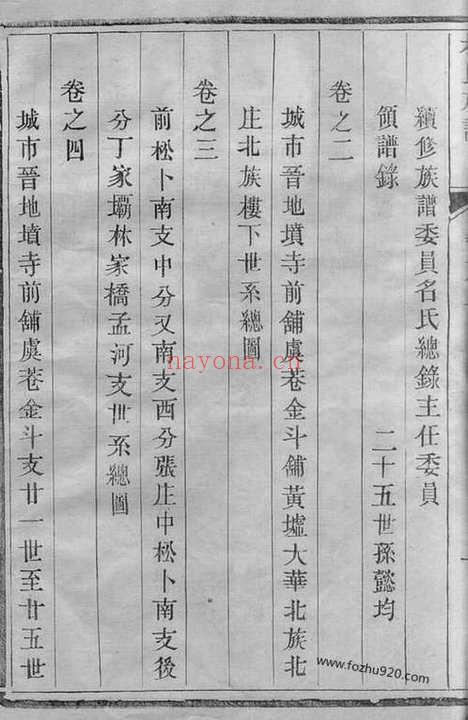 續修族譜委員名氏總錄主任委員
領譜錄 二十五世孫懿均
卷之二
城市晉地墳寺前舖虞巷金斗舖黃墟大華北族北
庄北族樓下世系總圖
卷之三
前松卜南支中分又南支西分張庄中松卜南支後
分丁家壩林家橋孟河支世系總圖
卷之四
城市晉地墳寺前舖虞巷金斗支廿一世至廿五世
nayona.cn
www.fozhu920.com